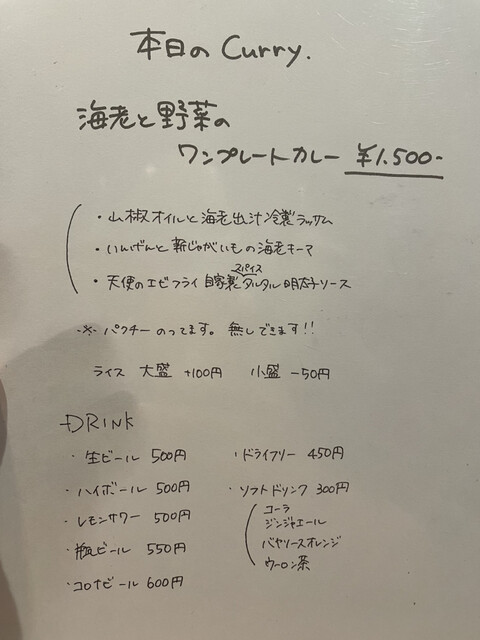 本日のCurry.
海老と野菜の
ワンプレートカレー ¥1.500-
・山椒オイルと海老出汁冷製ラッサム
・いんげんと新じゃがいもの海老キーマ
・天使のエビフライ 自家製スパイスタルタル明太子ソース
※ パクチーのってます。無しできます!!
ライス 大盛 +100円 小盛 -50円
DRINK
・生ビール 500円
・ハイボール 500円
・レモンサワー 500円
・瓶ビール 550円
・コロナビール 600円
・ドライフリー 450円
・ソフトドリンク 300円
コーラ
ジンジャエール
バヤリースオレンジ
ウーロン茶